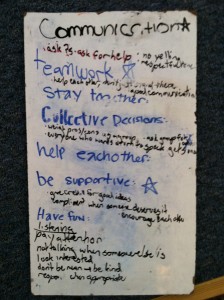 Communication
ask ?s - ask for help · no yelling
respectful tone
teamwork
help each other, don't just stand there
good communication
Stay together
Collective Decisions:
what problems
everyone who wants to speak gets to
help eachother:
be supportive:
give credit for good ideas
compliment when someone deserves it
encourage each other
Have fun:
listening
pay attention
not talking when someone else is
look interested
don't be mean be kind
respon when appropriate